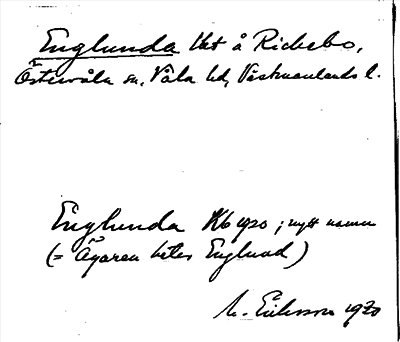 Englunda lht å Rickebo,
Östervåla sn, Våla hd, Västmanlands l.
Englunda Kb 1920; nytt namn
(= Ägaren heter Englund)
M. Eriksson 1920